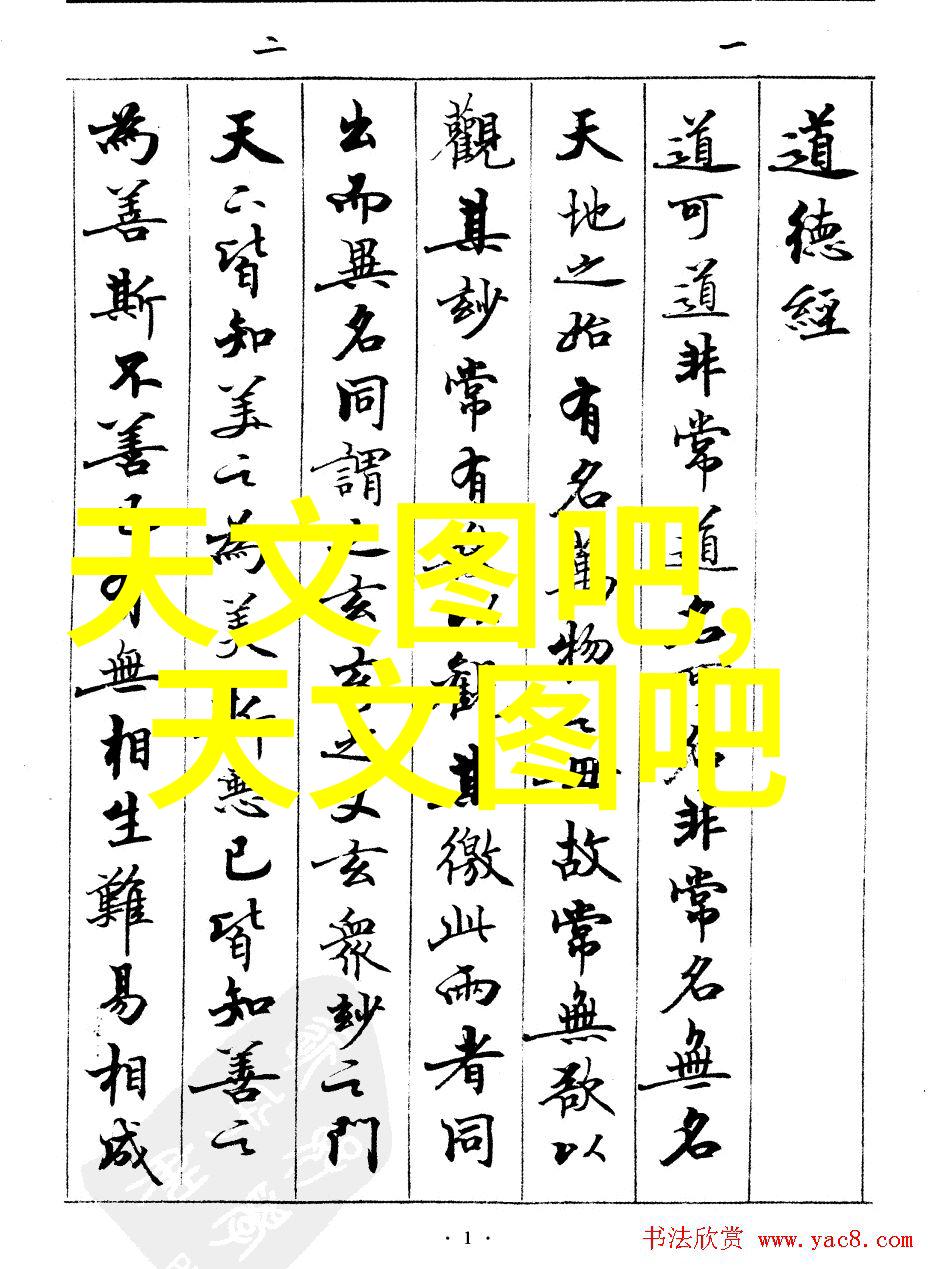 一
二
道德經
道可道非常道名可名非常名無名
天地之始有名萬物之母故常無欲以
觀其玅常有欲以觀其徼此兩者同
出而異名同謂之玄玄之又玄衆玅之門
天下皆知美之為美斯惡已皆知善之
為善斯不善已有無相生難易相成
天文图吧,
天文图吧
· 1 ·
书法欣赏 www.yac8.com